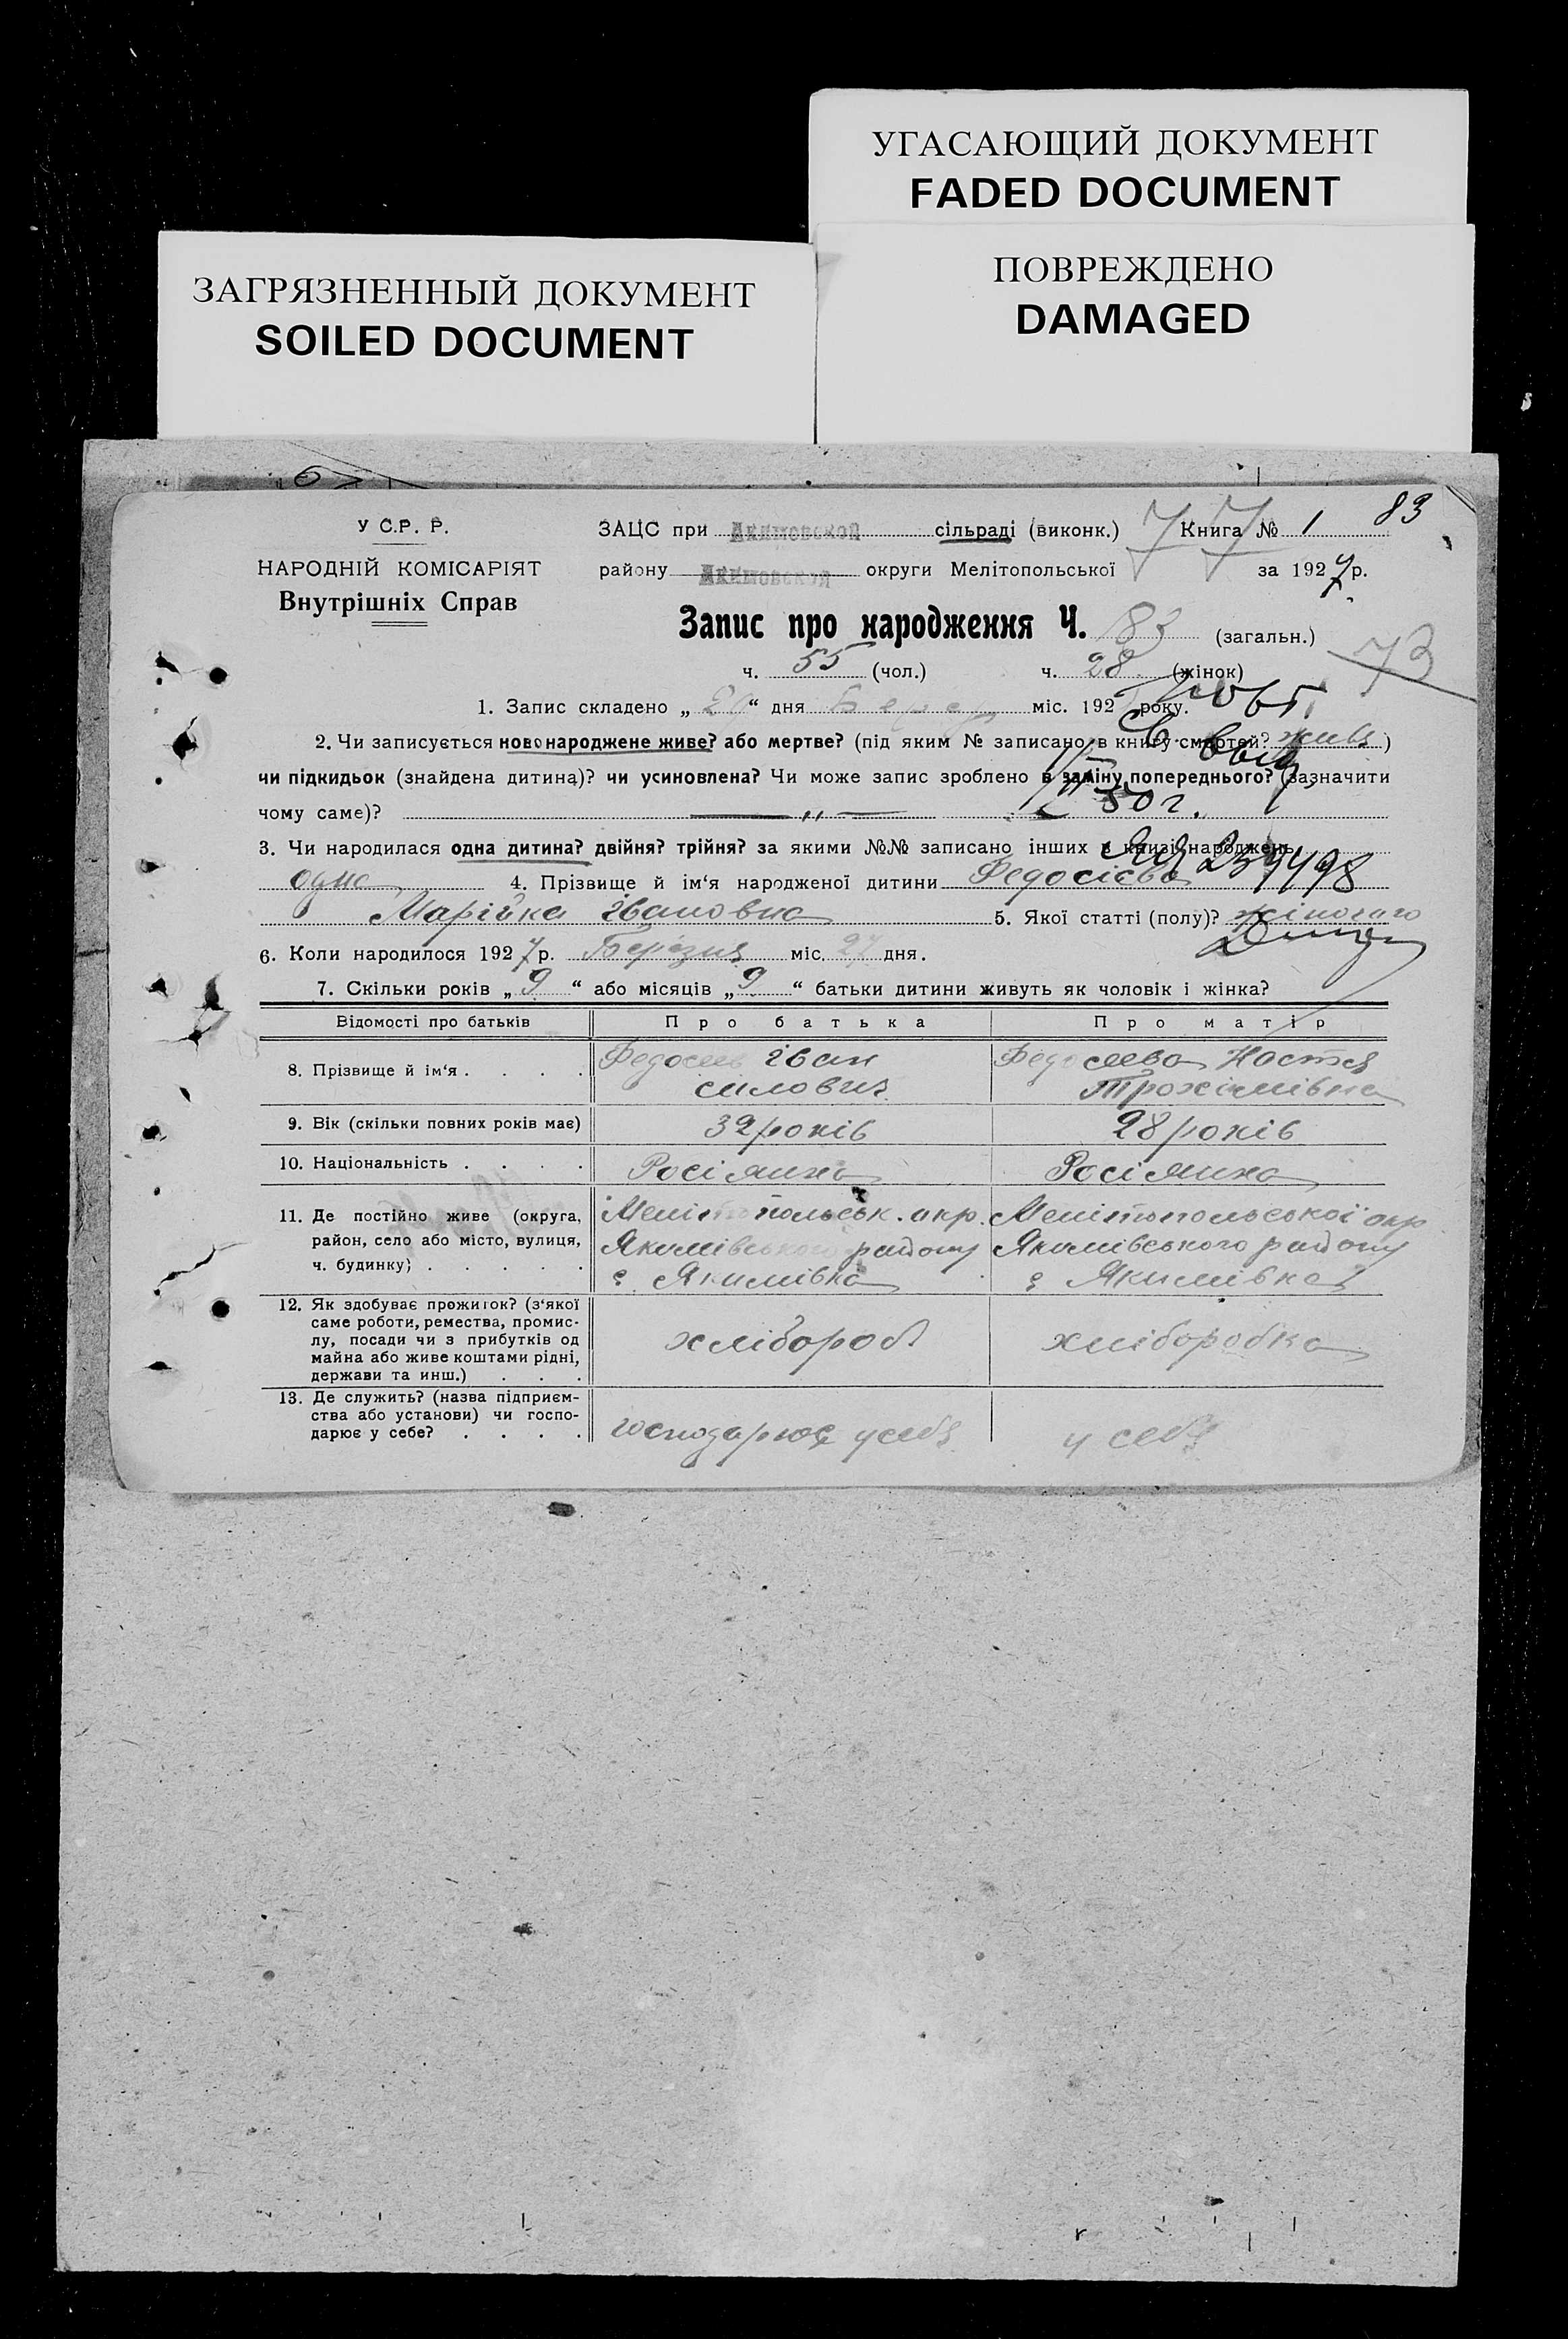 УГАСАЮЩИЙ ДОКУМЕНТ
FADED DOCUMENT
ЗАГРЯЗНЕННЫЙ ДОКУМЕНТ
SOILED DOCUMENT
ПОВРЕЖДЕНО
DAMAGED
83
У С.Р. Р.
НАРОДНІЙ КОМІСАРІЯТ
Внутрішніх Справ
ЗАЦС при Акимовской сільраді (виконк.) 77 Книга № 1
району Акимовской округи Мелітопольської за 1927 р.
Запис про народження Ч. 83 (загальн.)
73
ч. 55 (чол.) ч. 28 (жінок)
1. Запис складено „ “ дня міс. 192 року.
2. Чи записується новонароджене живе? або мертве? (під яким № записано в книгу смертей? живе)
чи підкидьок (знайдена дитина)? чи усиновлена? Чи може запис зроблено в заміну попереднього? (зазначити
чому саме)? — „ —
50 г.
3. Чи народилася одна дитина? двійня? трійня? за якими №№ записано інших в книзі народжень
239498
одна 4. Прізвище й ім‘я народженої дитини Федосієва
Марійка Івановна 5. Якої статті (полу)? жіночого
6. Коли народилося 1927 р. Березня міс. 27 дня.
7. Скільки років „ 9 “ або місяців „ 9 “ батьки дитини живуть як чоловік і жінка?
Відомості про батьків Про батька Про матір
8. Прізвище й ім‘я . . . . Федосеев Іван Федосеева Настя
Силович Трохімівна
9. Вік (скільки повних років має) 32 років 28 років
10. Національність . . . . Росіянин Росіянина
11. Де постійно живе (округа, Мелітопольськ. окр. Мелітопольської окр
район, село або місто, вулиця, Якимівського району Якимівського району
ч. будинку) . . . . . с. Якимівка с Якимівка
12. Як здобуває прожиток? (з‘якої
саме роботи, ремества, промис-
лу, посади чи з прибутків од хлібороб хліборобка
майна або живе коштами рідні,
держави та инш.) . . .
13. Де служить? (назва підприєм-
ства або установи) чи госпо-
дарює у себе? . . . . господарює у себя у себя